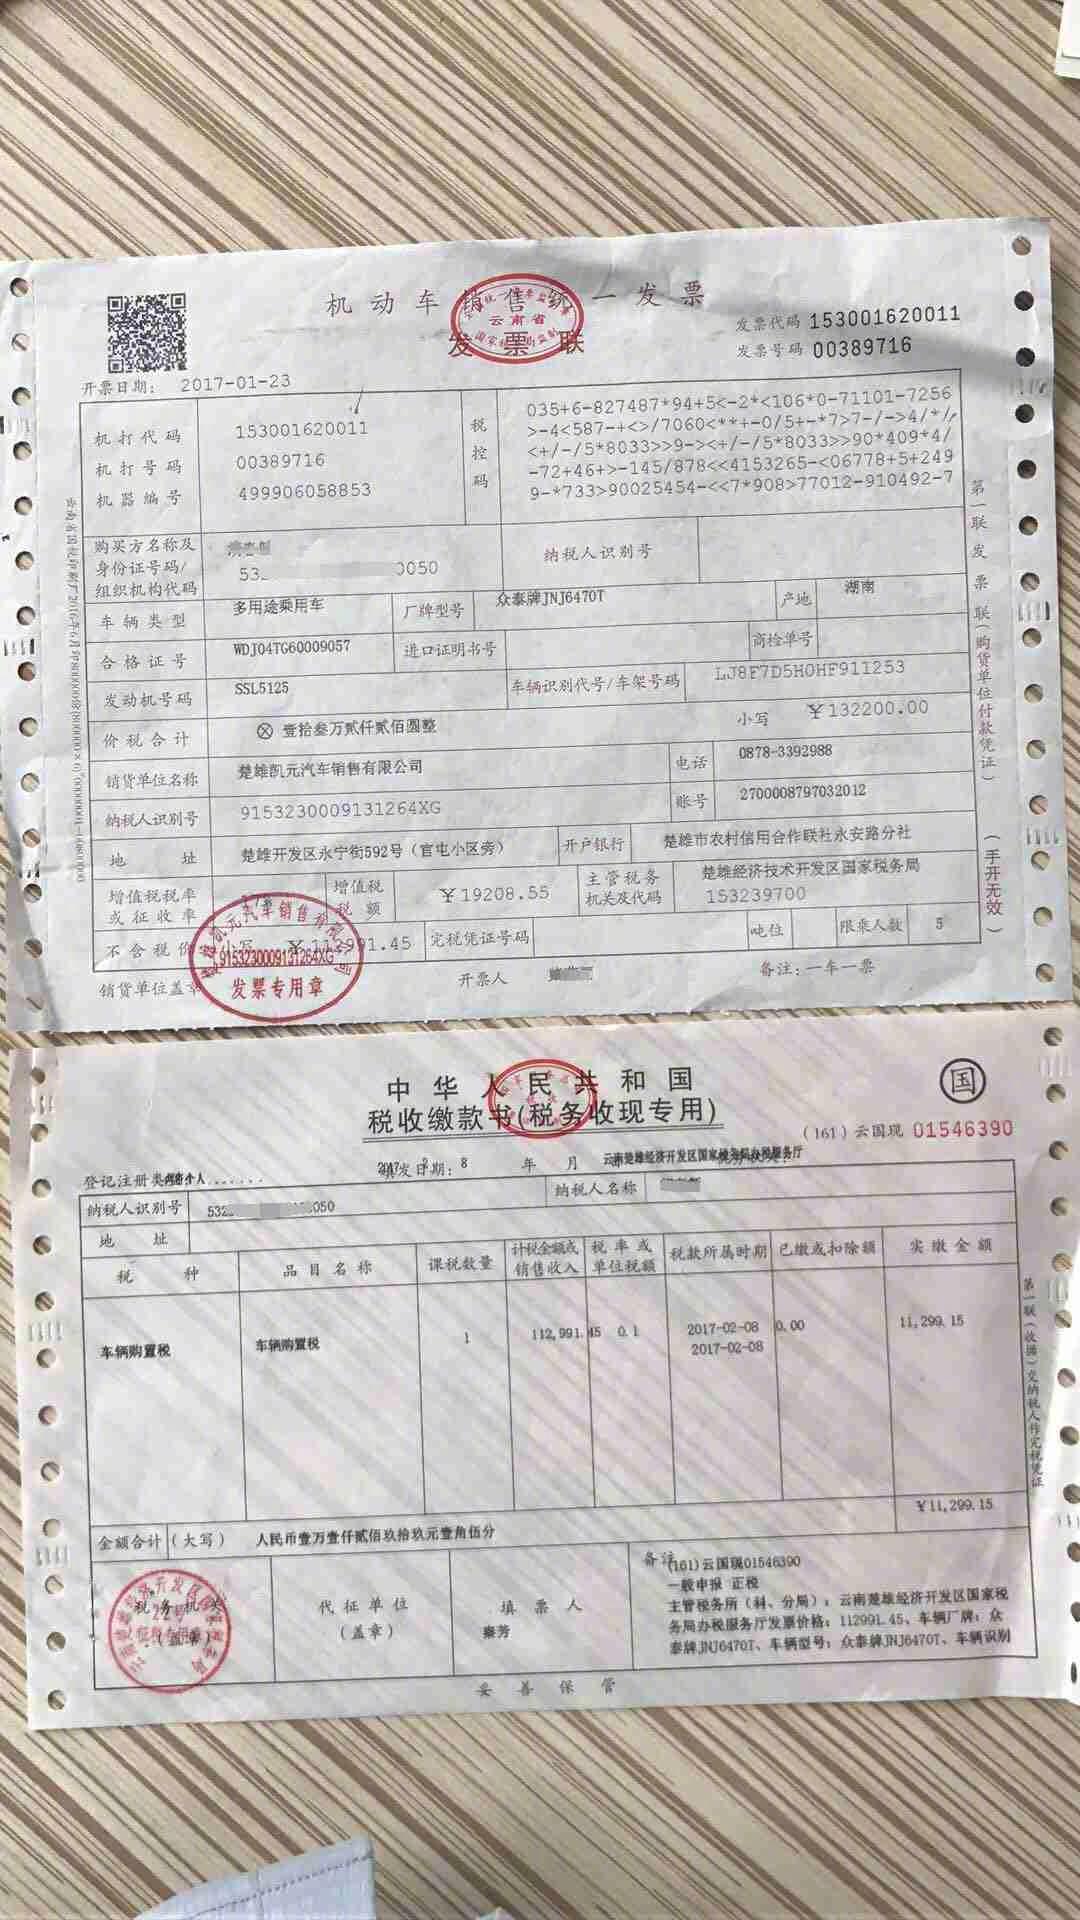 机动车销售统一发票
云南省
发票联
发票代码 153001620011
发票号码 00389716
开票日期: 2017-01-23
机打代码 153001620011
机打号码 00389716
机器编号 499906058853
税控码
035+6-827487*94+5<-2*<106*0-71101-7256
>-4<587-+<>/7060<**+-0/5+-*7>7-/->4/*/
<+/-/5*8033>>9-><+/-/5*8033>>90*409*4/
-72+46+>-145/878<<4153265-<06778+5+249
9-*733>90025454-<<7*908>77012-910492-7
购买方名称及
身份证号码/
组织机构代码
53 0050
纳税人识别号
车辆类型 多用途乘用车 厂牌型号 众泰牌JNJ6470T 产地 湖南
合格证号 WDJ04TG60009057 进口证明书号 商检单号
发动机号码 SSL5125 车辆识别代号/车架号码 LJ8F7D5H0HF911253
价税合计 ⊗ 壹拾叁万贰仟贰佰圆整 小写 ¥132200.00
销货单位名称 楚雄凯元汽车销售有限公司 电话 0878-3392988
纳税人识别号 9153230009131264XG 账号 2700008797032012
地址 楚雄开发区永宁街592号（官屯小区旁） 开户银行 楚雄市农村信用合作联社永安路分社
增值税税率
或征收率
增值税
税额
¥19208.55
主管税务
机关及代码
楚雄经济技术开发区国家税务局
153239700
不含税价 小写 ¥112991.45 完税凭证号码 吨位 限乘人数 5
销货单位盖章 开票人 备注:一车一票
楚雄凯元汽车销售有限公司
9153230009131264XG
发票专用章
第一联 发票联(购货单位付款凭证)
(手开无效)
中华人民共和国
税收缴款书(税务收现专用)
国
(161)云国现 01546390
登记注册类型
填发日期: 2017 年 2 月 8
云南楚雄经济开发区国家税务局办税服务厅
纳税人识别号 532 050 纳税人名称
地址
税种 品目名称 课税数量 计税金额或销售收入 税率或单位税额 税款所属时期 已缴或扣除额 实缴金额
车辆购置税 车辆购置税 1 112,991.45 0.1 2017-02-08 0.00 11,299.15
2017-02-08
¥11,299.15
金额合计 (大写) 人民币壹万壹仟贰佰玖拾玖元壹角伍分
税务机关
(盖章)
代征单位
(盖章)
填票人
秦芳
备注
(161)云国现01546390
一般申报 正税
主管税务所（科、分局）：云南楚雄经济开发区国家税
务局办税服务厅发票价格：112991.45、车辆厂牌：众
泰牌JNJ6470T、车辆型号：众泰牌JNJ6470T、车辆识别
第一联(收据)交纳税人作完税凭证
妥善保管